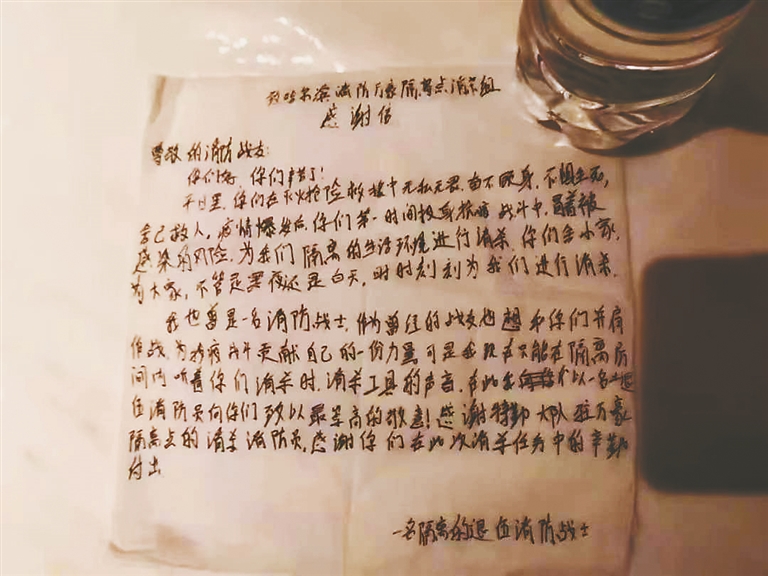 致哈尔滨消防万豪隔离点消杀组
感谢信
尊敬的消防战友:
你们好,你们辛苦了!
平日里,你们在灭火抢险救援中无私无畏,奋不顾身,不惧生死,
舍己救人,疫情爆发后,你们第一时间投身抗疫战斗中,冒着被
感染的风险,为我们隔离的生活环境进行消杀,你们舍小家,
为大家,不管是黑夜还是白天,时时刻刻为我们进行消杀.
我也曾是一名消防战士,作为曾经的战友也想和你们并肩
作战,为抗疫战斗贡献自己的一份力量,可是我现在只能在隔离房
间内听着你们消杀时,消杀工具的声音,在此我以一名退
伍消防员向你们致以最崇高的敬意!感谢特勤大队驻万豪
隔离点的消杀消防员,感谢你们在此次消杀任务中的辛勤
付出.
一名隔离的退伍消防战士